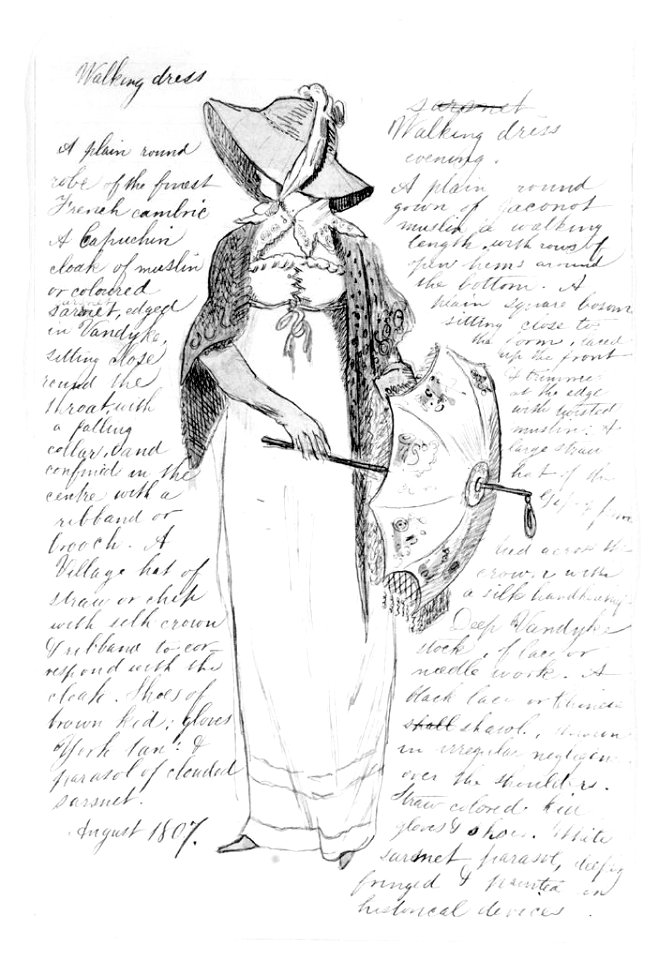 Walking dress
A plain round
robe of the finest
French cambric
A Capuchin
cloak of muslin
or coloured
sarsnet, edged
in Vandyke,
sitting close
round the
throat, with
a falling
collar, and
confined in the
centre with a
ribband or
brooch. A
Village hat of
straw or chip
with silk crown
& ribband to cor-
respond with the
cloak. Shoes of
brown kid; gloves
York tan; &
parasol of clouded
sarsnet.
August 1807.
sarsnet
Walking dress
evening.
A plain round
gown of jaconot
muslin, a walking
length, with rows of
open hems around
the bottom. A
plain square bosom
sitting close to
the form, laced
up the front
& trimmed
at the edge
with twisted
muslin; A
large straw
hat of the
Gipsy form
tied across the
crown with
a silk handk
Deep Vandyke
stock, of lace or
needle work. A
black lace or Chinese
shall shawl, thrown
in irregular negligence
over the shoulders.
Straw colored kid
gloves & shoes. White
sarsnet parasol, deeply
fringed & painted in
historical devices.